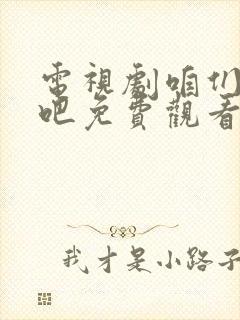 電視劇咱们
吧免費觀看
我才是小路子